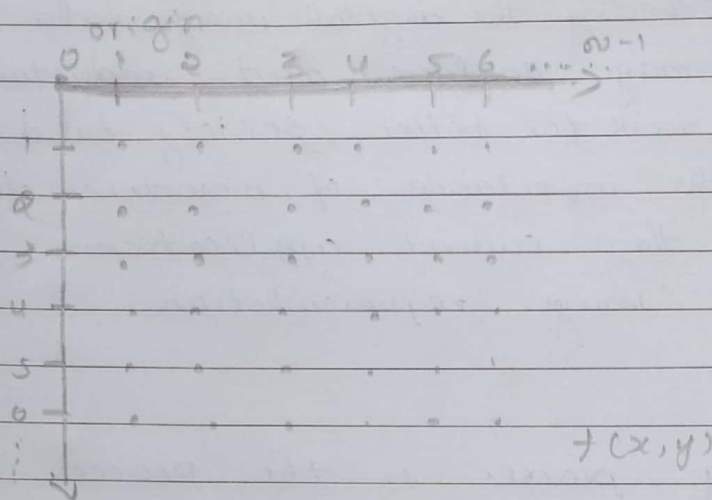 origin
0 1 2 3 4 5 6 .... N-1
1
2
3
4
5
0
⋮
f(x,y)